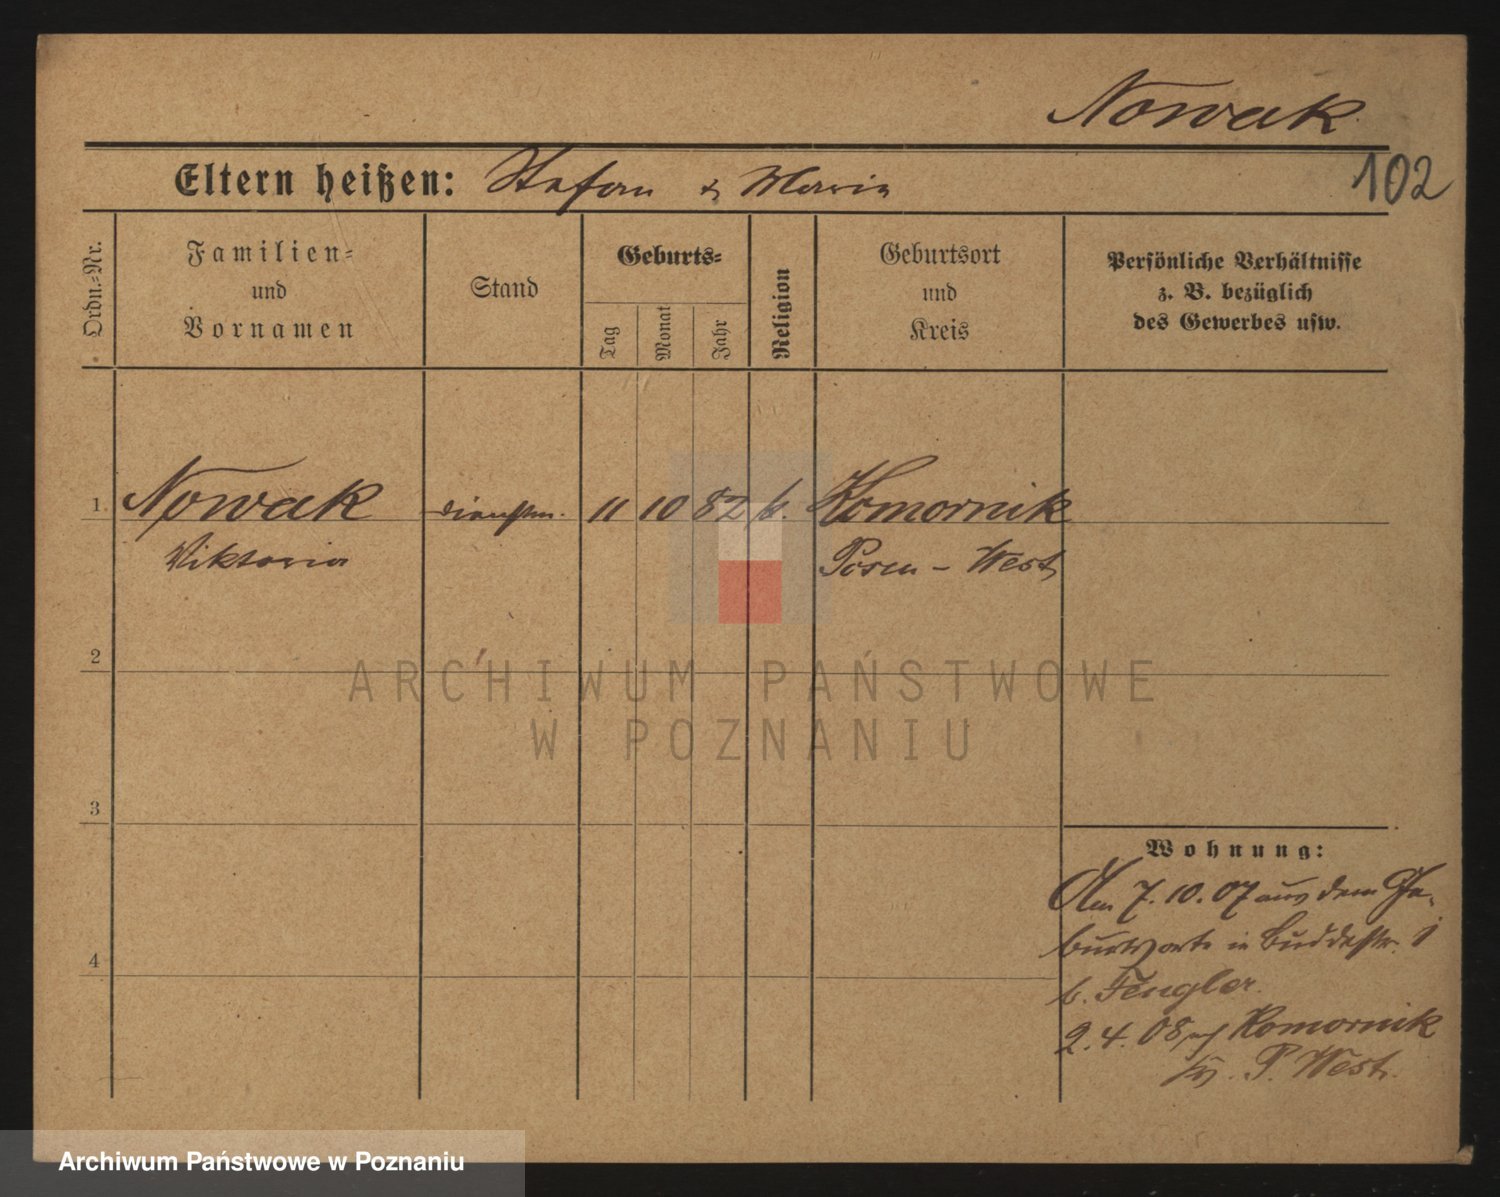 Nowak
Eltern heißen: Stefan & Maria
102
Ordn.-Nr.
Familien-
und
Vornamen
Stand
Geburts-
Tag
Monat
Jahr
Religion
Geburtsort
und
Kreis
Persönliche Verhältnisse
z. B. bezüglich
des Gewerbes usw.
1 Nowak dienstm. 11 10 82 k. Komornik
Viktoria Posen - West
2
ARCHIWUM PAŃSTWOWE
W POZNANIU
3
Wohnung:
Am 7.10.07 aus dem Ge-
burtsorte in Buddestr. 1
b. Fengler.
2.4.08 nach Komornik
Kr. P. West.
4
Archiwum Państwowe w Poznaniu